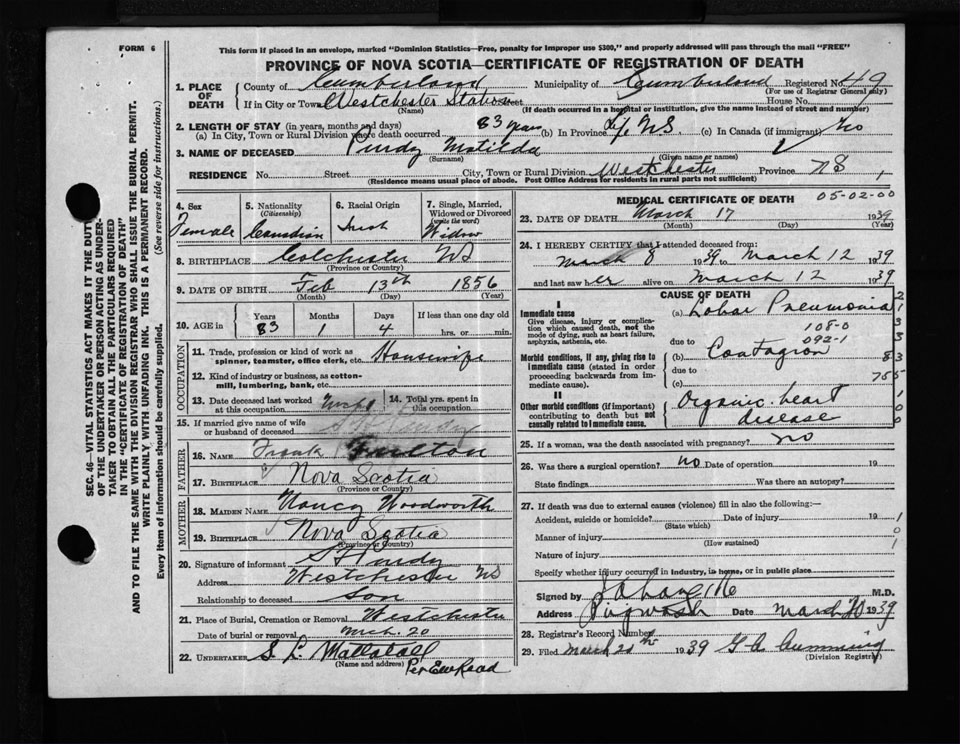 FORM 6
This form if placed in an envelope, marked "Dominion Statistics—Free, penalty for improper use $300," and properly addressed will pass through the mail "FREE"
PROVINCE OF NOVA SCOTIA—CERTIFICATE OF REGISTRATION OF DEATH
SEC. 46—VITAL STATISTICS ACT MAKES IT THE DUTY
OF THE UNDERTAKER OR PERSON ACTING AS UNDER-
TAKER TO OBTAIN ALL THE PARTICULARS REQUIRED
IN THE "CERTIFICATE OF REGISTRATION OF DEATH"
AND TO FILE THE SAME WITH THE DIVISION REGISTRAR WHO SHALL ISSUE THE BURIAL PERMIT.
WRITE PLAINLY WITH UNFADING INK. THIS IS A PERMANENT RECORD.
Every item of information should be carefully supplied. (See reverse side for instructions.)
1. PLACE OF DEATH
County of Cumberland Municipality of Cumberland Registered No. 49
(For use of Registrar General only)
If in City or Town Westchester Station Street House No.
(Name) (If death occurred in a hospital or institution, give the name instead of street and number)
2. LENGTH OF STAY (in years, months and days)
(a) In City, Town or Rural Division where death occurred 83 years (b) In Province Life NS. (c) In Canada (if immigrant) no
3. NAME OF DECEASED Purdy Matilda
(Surname) (Given name or names)
RESIDENCE No. Street City, Town or Rural Division Westchester Province NS
(Residence means usual place of abode. Post Office Address for residents in rural parts not sufficient)
4. Sex Female
5. Nationality (Citizenship) Canadian
6. Racial Origin Irish
7. Single, Married, Widowed or Divorced (write the word) Widow
8. BIRTHPLACE Colchester NS
(Province or Country)
9. DATE OF BIRTH Feb 13th 1856
(Month) (Day) (Year)
10. AGE in Years Months Days If less than one day old
83 1 4 hrs. or min.
OCCUPATION
11. Trade, profession or kind of work as spinner, teamster, office clerk, etc. Housewife
12. Kind of industry or business, as cotton-mill, lumbering, bank, etc.
13. Date deceased last worked at this occupation
14. Total yrs. spent in this occupation
15. If married give name of wife or husband of deceased
FATHER
16. NAME Frank Fulton
17. BIRTHPLACE Nova Scotia
(Province or Country)
MOTHER
18. MAIDEN NAME Nancy Woodworth
19. BIRTHPLACE Nova Scotia
(Province or Country)
20. Signature of informant Purdy
Address Westchester NS
Relationship to deceased Son
21. Place of Burial, Cremation or Removal Westchester
Date of burial or removal Mch. 20
22. UNDERTAKER S. L.
(Name and address) Per
MEDICAL CERTIFICATE OF DEATH 05-02-00
23. DATE OF DEATH March 17 1939
(Month) (Day) (Year)
24. I HEREBY CERTIFY that I attended deceased from:
March 8 1939 to March 12 1939
and last saw her alive on March 12 1939
CAUSE OF DEATH
I
Immediate cause
Give disease, injury or complication which caused death, not the mode of dying, such as heart failure, asphyxia, asthenia, etc.
(a) Lobar Pneumonia
108-0
092-1
due to
Morbid conditions, if any, giving rise to immediate cause (stated in order proceeding backwards from immediate cause)
(b) Contagion
due to
(c)
II
Other morbid conditions (if important) contributing to death but not causally related to immediate cause.
Organic heart
disease
25. If a woman, was the death associated with pregnancy? no
26. Was there a surgical operation? no Date of operation 19
State findings Was there an autopsy?
27. If death was due to external causes (violence) fill in also the following:
Accident, suicide or homicide? Date of injury 19
(State which)
Manner of injury
(How sustained)
Nature of injury
Specify whether injury occurred in industry, in home, or in public place
Signed by M.D.
Address Pugwash Date March 20 1939
28. Registrar's Record Number
29. Filed March 1939 G. A. Cumming
(Division Registrar)